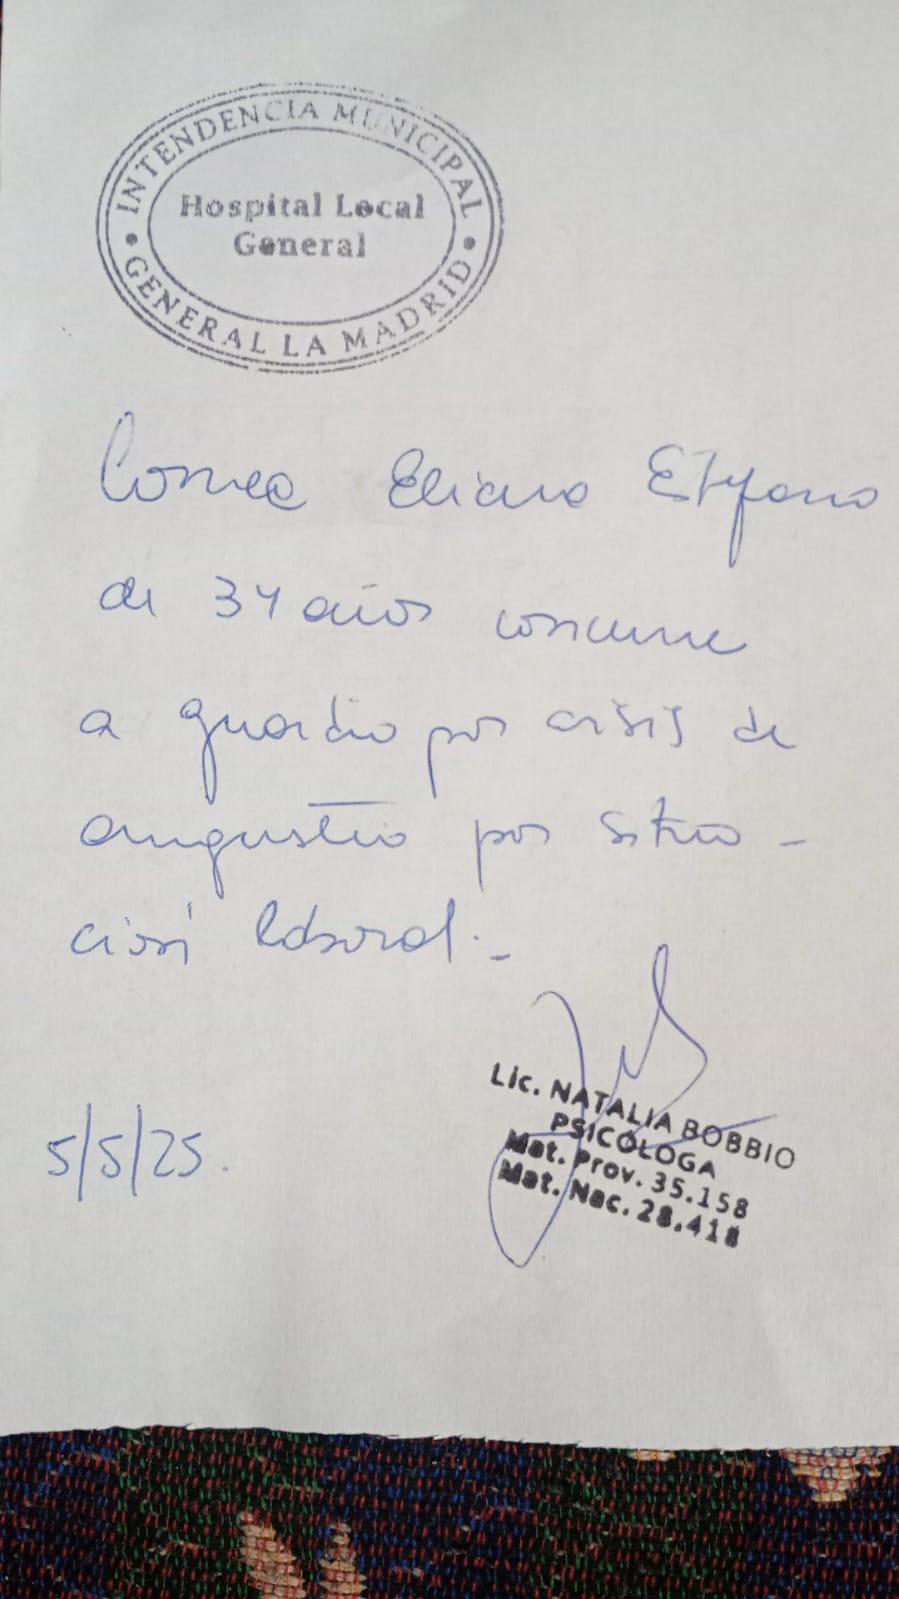 INTENDENCIA MUNICIPAL
Hospital Local
General
GENERAL LA MADRID
Correa Eliana Estefania
de 34 años concurre
a guardia por crisis de
angustia por situa-
ción laboral.-
Lic. NATALIA BOBBIO
PSICÓLOGA
Mat. Prov. 35.158
Mat. Nac. 28.418
5/5/25.